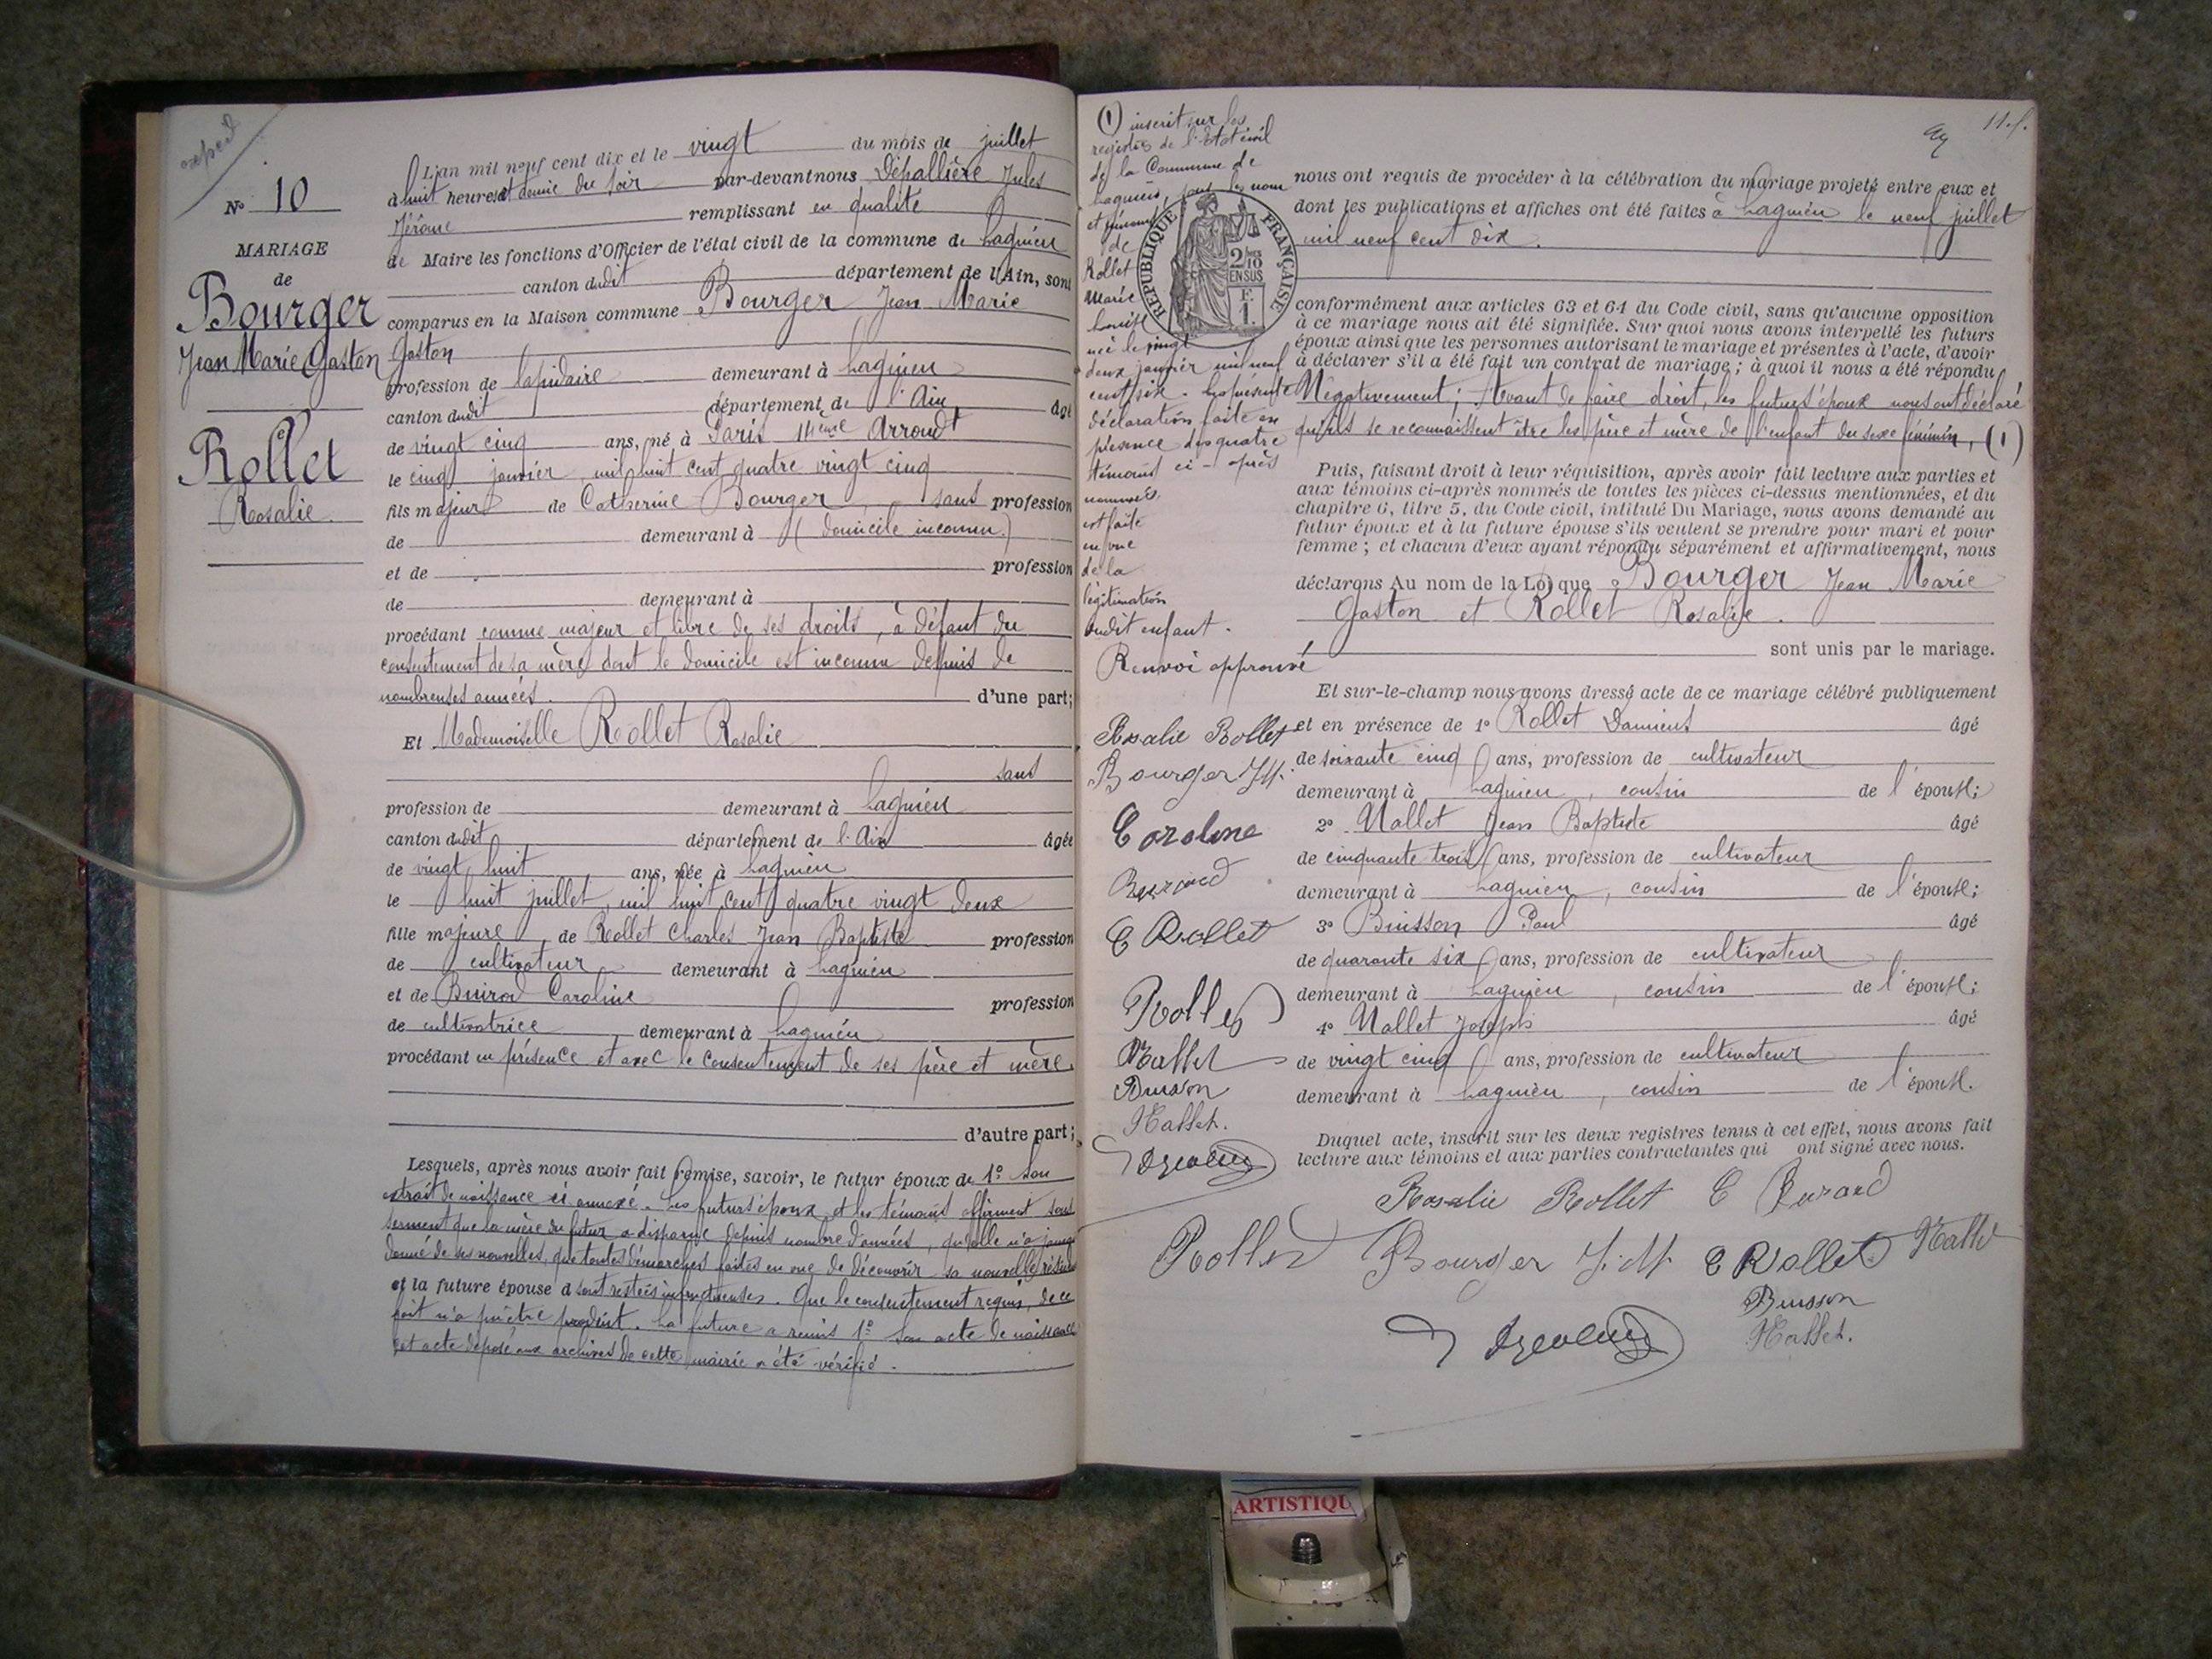 expéd
N° 10
MARIAGE
de
Bourger
Jean Marie Gaston
Rollet
Rosalie
L'an mil neuf cent dix et le vingt du mois de juillet
à huit heures et demie du soir par-devant nous Dépallière Jules
Jérôme remplissant en qualité
de Maire les fonctions d'Officier de l'état civil de la commune de Lagnieu
canton dudit département de l'Ain, sont
comparus en la Maison commune Bourger Jean Marie
Gaston
profession de lapidaire demeurant à Lagnieu
canton dudit département de l'Ain âgé
de vingt cinq ans, né à Paris 14ème Arrondt
le cinq janvier mil huit cent quatre vingt cinq
fils majeur de Catherine Bourger, sans profession
de demeurant à (domicile inconnu.)
et de profession
de demeurant à
procédant comme majeur et libre de ses droits, à défaut du
consentement de sa mère dont le domicile est inconnu depuis de
nombreuses années. d'une part;
Et Mademoiselle Rollet Rosalie
sans
profession de demeurant à Lagnieu
canton dudit département de l'Ain âgée
de vingt huit ans, née à Lagnieu
le huit juillet mil huit cent quatre vingt deux
fille majeure de Rollet Charles Jean Baptiste profession
de cultivateur demeurant à Lagnieu
et de Caroline profession
de cultivatrice demeurant à Lagnieu
procédant en présence et avec le consentement de ses père et mère.
d'autre part;
Lesquels, après nous avoir fait remise, savoir, le futur époux de 1° Son
extrait de naissance ci annexé. Les futurs époux et les témoins affirment sous
serment que la mère du futur a disparue depuis nombre d'années, qu'elle n'a jamais
donné de ses nouvelles, que toutes démarches faites en vue de découvrir sa nouvelle
et la future épouse d sont restées infructueuses. Que le consentement requis, de ce
fait n'a pu être produit. La future a remis 1° Son acte de naissance
cet acte déposé aux archives de cette mairie a été vérifié.
(1) inscrit sur les
registres de l'Etat civil
de la Commune de
Lagnieu, sous les nom
et prénoms
de
Rollet
Marie
Louise
née le vingt
deux janvier mil neuf
cent six. La présente
déclaration faite en
présence des quatre
témoins ci-après
nommés
est faite
en vue
de la
légitimation
dudit enfant.
Renvoi approuvé
Rosalie Rollet
Bourger J.M.
Caroline
E Rollet
Rollet
Nallet
Buisson
Nallet.
11.
REPUBLIQUE FRANÇAISE
2/10
EN SUS
F.
1.
nous ont requis de procéder à la célébration du mariage projeté entre eux et
dont les publications et affiches ont été faites à Lagnieu le neuf juillet
mil neuf cent dix.
conformément aux articles 63 et 64 du Code civil, sans qu'aucune opposition
à ce mariage nous ait été signifiée. Sur quoi nous avons interpellé les futurs
époux ainsi que les personnes autorisant le mariage et présentes à l'acte, d'avoir
à déclarer s'il a été fait un contrat de mariage; à quoi il nous a été répondu
Négativement; Avant de faire droit, les futurs époux nous ont déclaré
qu'ils se reconnaissent être les père et mère de l'enfant du sexe féminin, (1)
Puis, faisant droit à leur réquisition, après avoir fait lecture aux parties et
aux témoins ci-après nommés de toutes les pièces ci-dessus mentionnées, et du
chapitre 6, titre 5, du Code civil, intitulé Du Mariage, nous avons demandé au
futur époux et à la future épouse s'ils veulent se prendre pour mari et pour
femme; et chacun d'eux ayant répondu séparément et affirmativement, nous
déclarons Au nom de la Loi que Bourger Jean Marie
Gaston et Rollet Rosalie.
sont unis par le mariage.
Et sur-le-champ nous avons dressé acte de ce mariage célébré publiquement
et en présence de 1° Rollet Damiens âgé
de soixante cinq ans, profession de cultivateur
demeurant à Lagnieu, cousin de l'épouse;
2° Nallet Jean Baptiste âgé
de cinquante trois ans, profession de cultivateur
demeurant à Lagnieu, cousin de l'épouse;
3° Buisson Paul âgé
de quarante six ans, profession de cultivateur
demeurant à Lagnieu, cousin de l'épouse;
4° Nallet Joseph âgé
de vingt cinq ans, profession de cultivateur
demeurant à Lagnieu, cousin de l'épouse.
Duquel acte, inscrit sur les deux registres tenus à cet effet, nous avons fait
lecture aux témoins et aux parties contractantes qui ont signé avec nous.
Rosalie Rollet C
Rollet Bourger J.M. E Rollet Nallet
Buisson
Nallet.
ARTISTIQU